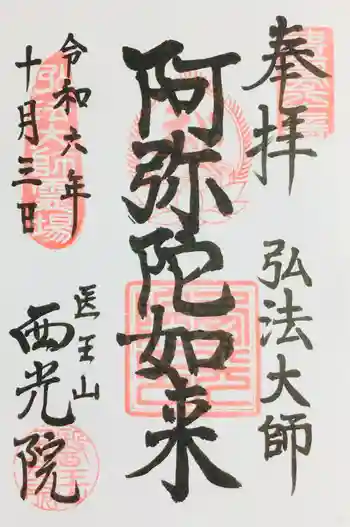 奉拝
弘法大師
阿弥陀如来
令和六年
十月三日
弘法大師霊場
医王山
西光院